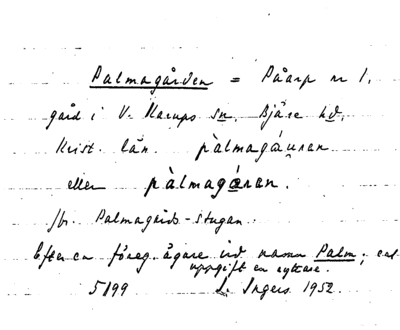 Palmagården = Påarp nr 1.
gård i V. Karups sn. Bjäre hd.
Krist. län. pàlmagáuran
eller pàlmagǽran.
jfr. Palmagårds-stugan.
Efter en föreg. ägare vid namn Palm; enl
uppgift en ryttare.
5199 I. Ingers 1952.